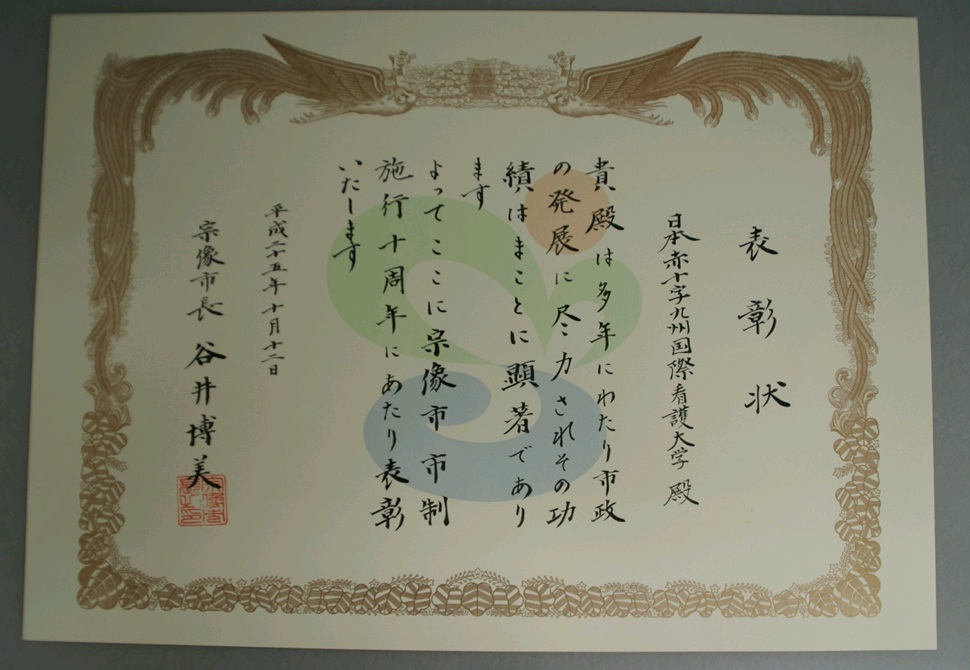 表彰状
日本赤十字九州国際看護大学 殿
貴殿は多年にわたり市政
の発展に尽力されその功
績はまことに顕著であり
ます
よってここに宗像市市制
施行十周年にあたり表彰
いたします
平成二十五年十月十二日
宗像市長 谷井博美